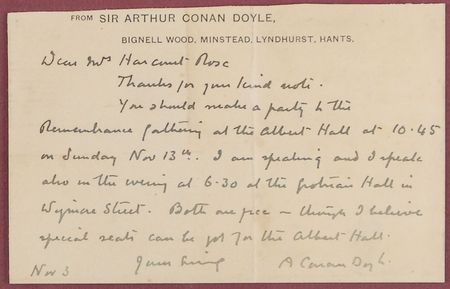 FROM SIR ARTHUR CONAN DOYLE,
BIGNELL WOOD, MINSTEAD, LYNDHURST, HANTS.
Dear Mrs Harcourt Rose
Thanks for your kind note.
You should make a party to the
Remembrance gathering at the Albert Hall at 10.45
on Sunday Nov 13th. I am speaking and I speak
also in the evening at 6.30 at the Grotrian Hall in
Wigmore Street. Both are free – though I believe
special seats can be got for the Albert Hall.
Nov 3 Yours A Conan Doyle.